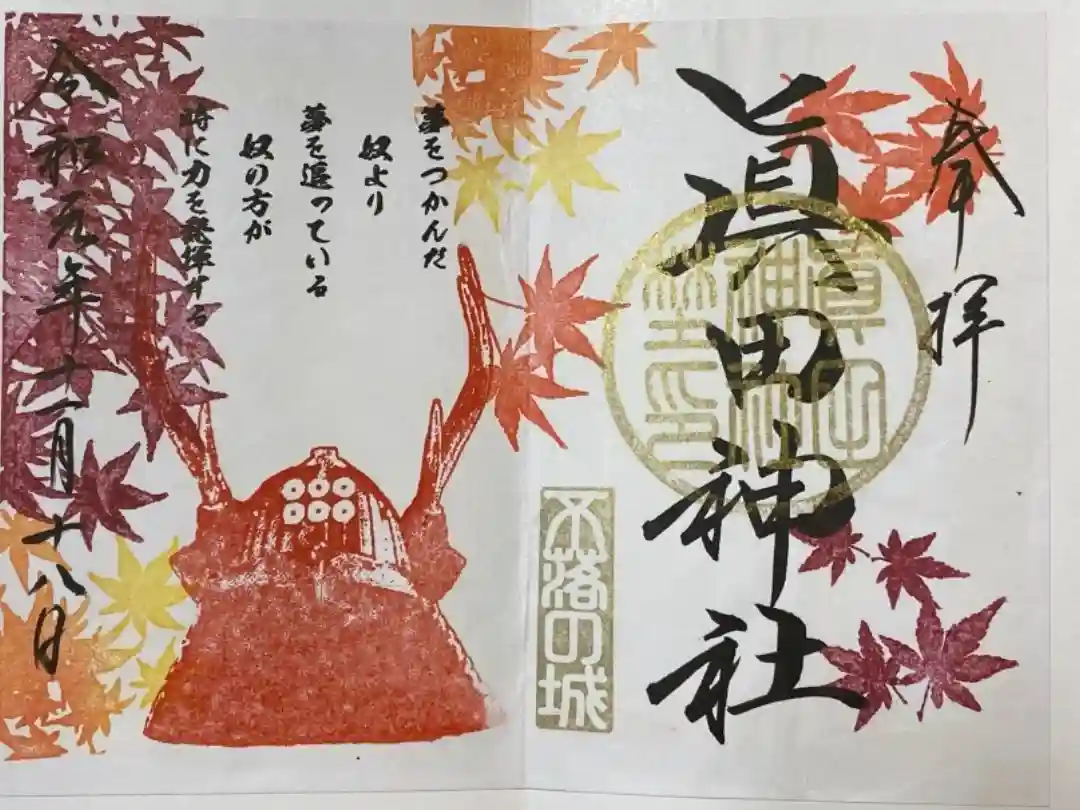 奉拝
眞田神社
眞田
神社
璽印
不落の城
夢をつかんだ
奴より
夢を追っている
奴の方が
時に力を発揮する
令和元年十一月十八日